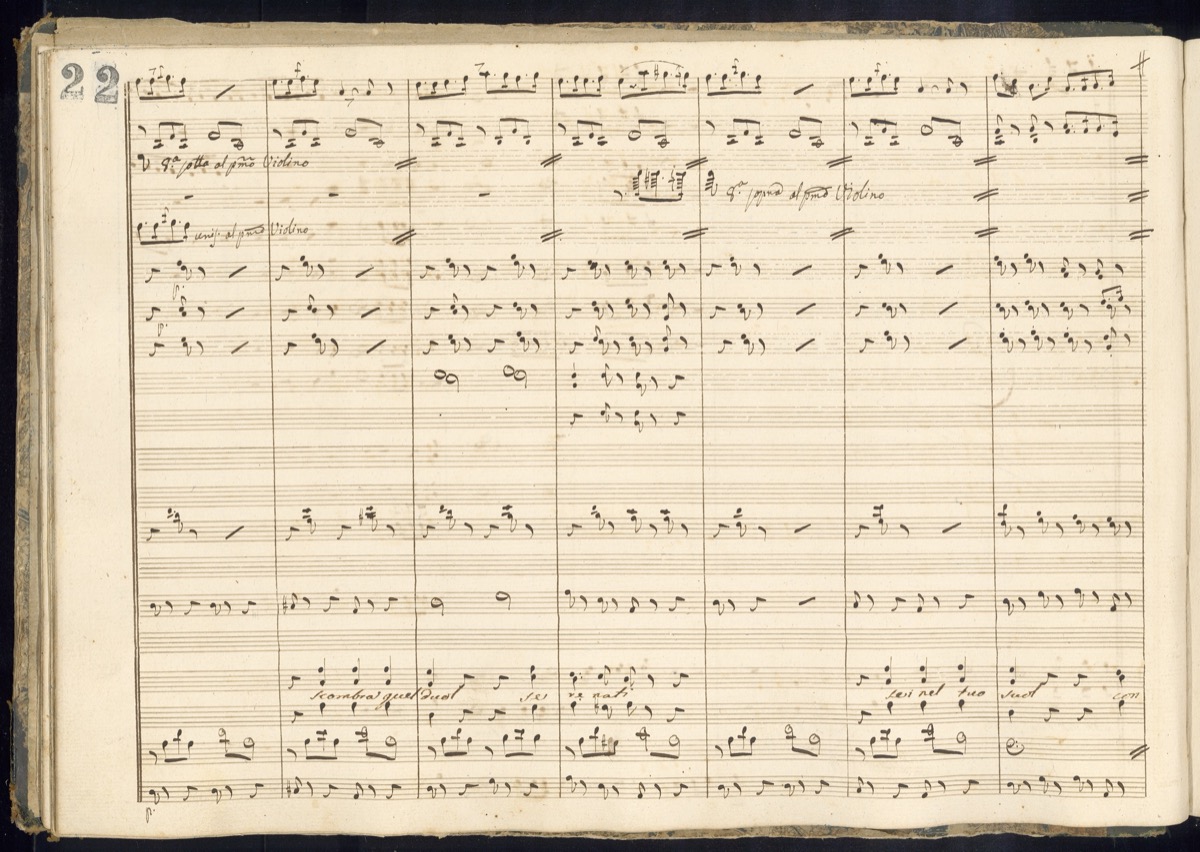 22
8.ª sotto al pmo Violino
8.ª sopra al pmo Violino
unis: al pmo Violino
p:
p:
scombra quel duol se re nati sei nel tuo suol con
p: